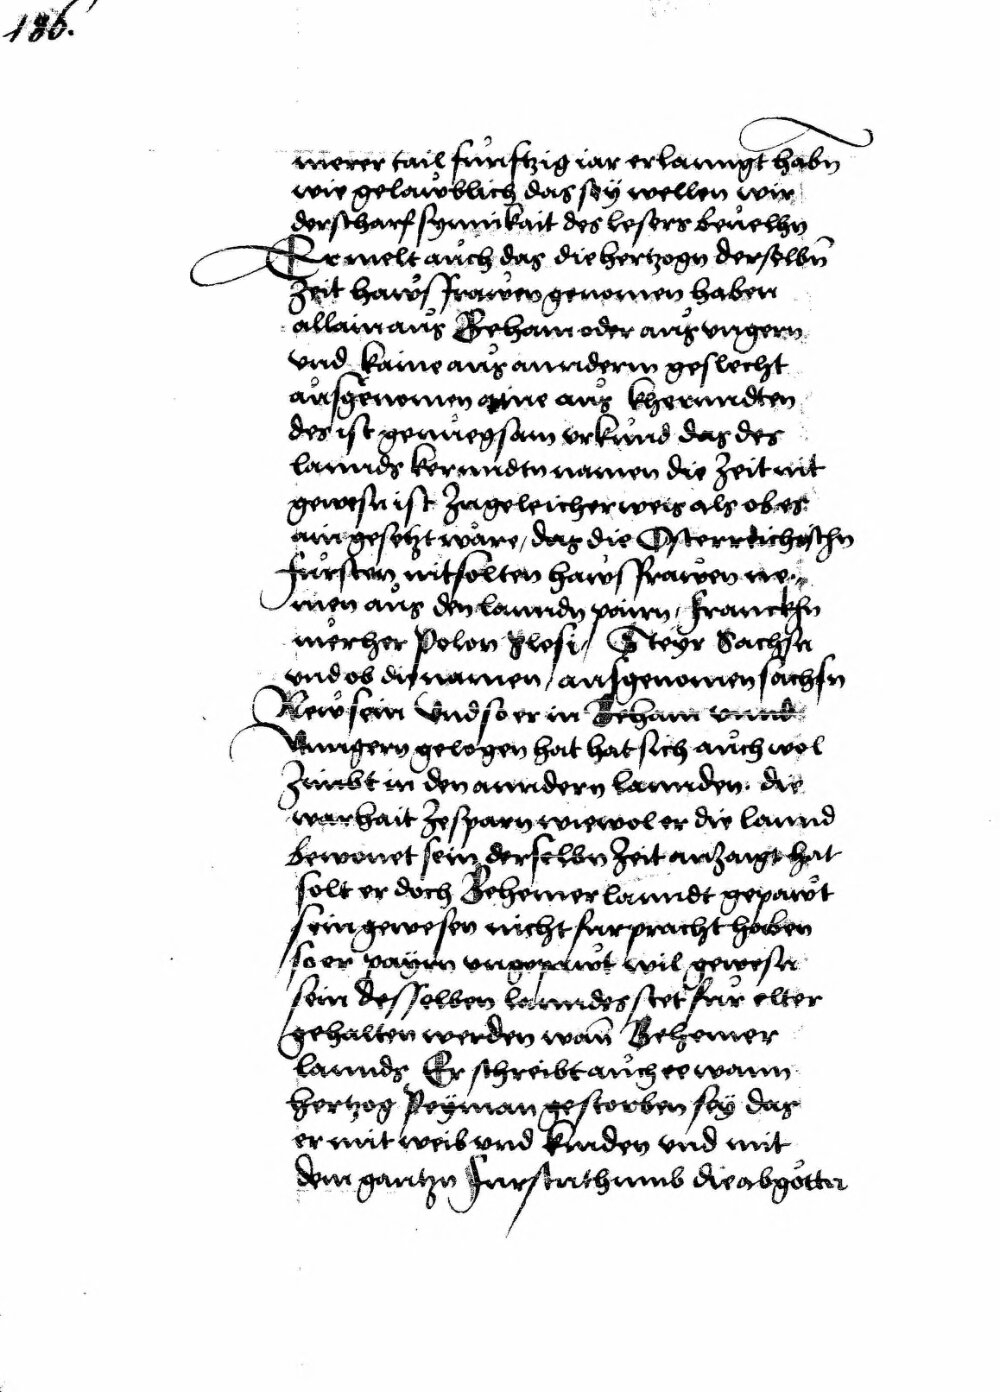 186.
merer tail funftzig iar erlanngt habn
wie gelawblich das sey wellen wir
der scharfsynnikait des lesers beuelhn
Er melt auch das die hertzogn derselbn
Zeit hawsfrawen genomen haben
allain aus Beham oder aus vngern
vnd kaine aus annderm geslecht
ausgenomen aine aus khernndten
des ist genuegsam vrkund das des
lannds kernndtn namen die Zeit nit
gewesn ist Zugeleicher weis als ob es
ain gesetzt ware / das die Osterreichischn
fursten nit solten hawsfrawen ne-
men aus den lanndn pairn / Franckhn
merher Polon Slesi / Steyr Sachsn
vnd ob die namen / ausgenomen sachsn
New sein Vnd so er in Beham vnnd
Vnngern gelogen hat hat sich auch wol
Zimbt in den anndern lannden die
warhait Zesparn wiewol er die lannd
bewonet sein derselbn Zeit anzaigt hat
solt er doch Behemer lanndt gepawt
sein gewesen nicht furpracht haben
so er payrn vngepawt wil gewesn
sein desselben lanndes stet fur elter
gehalten werden wann Behemer
lannds Er schreibt auch ee wann
hertzog Peyman gestorben sey das
er mit weib vnd kinden vnd mit
dem gantzn Furstnthumb die abgotter